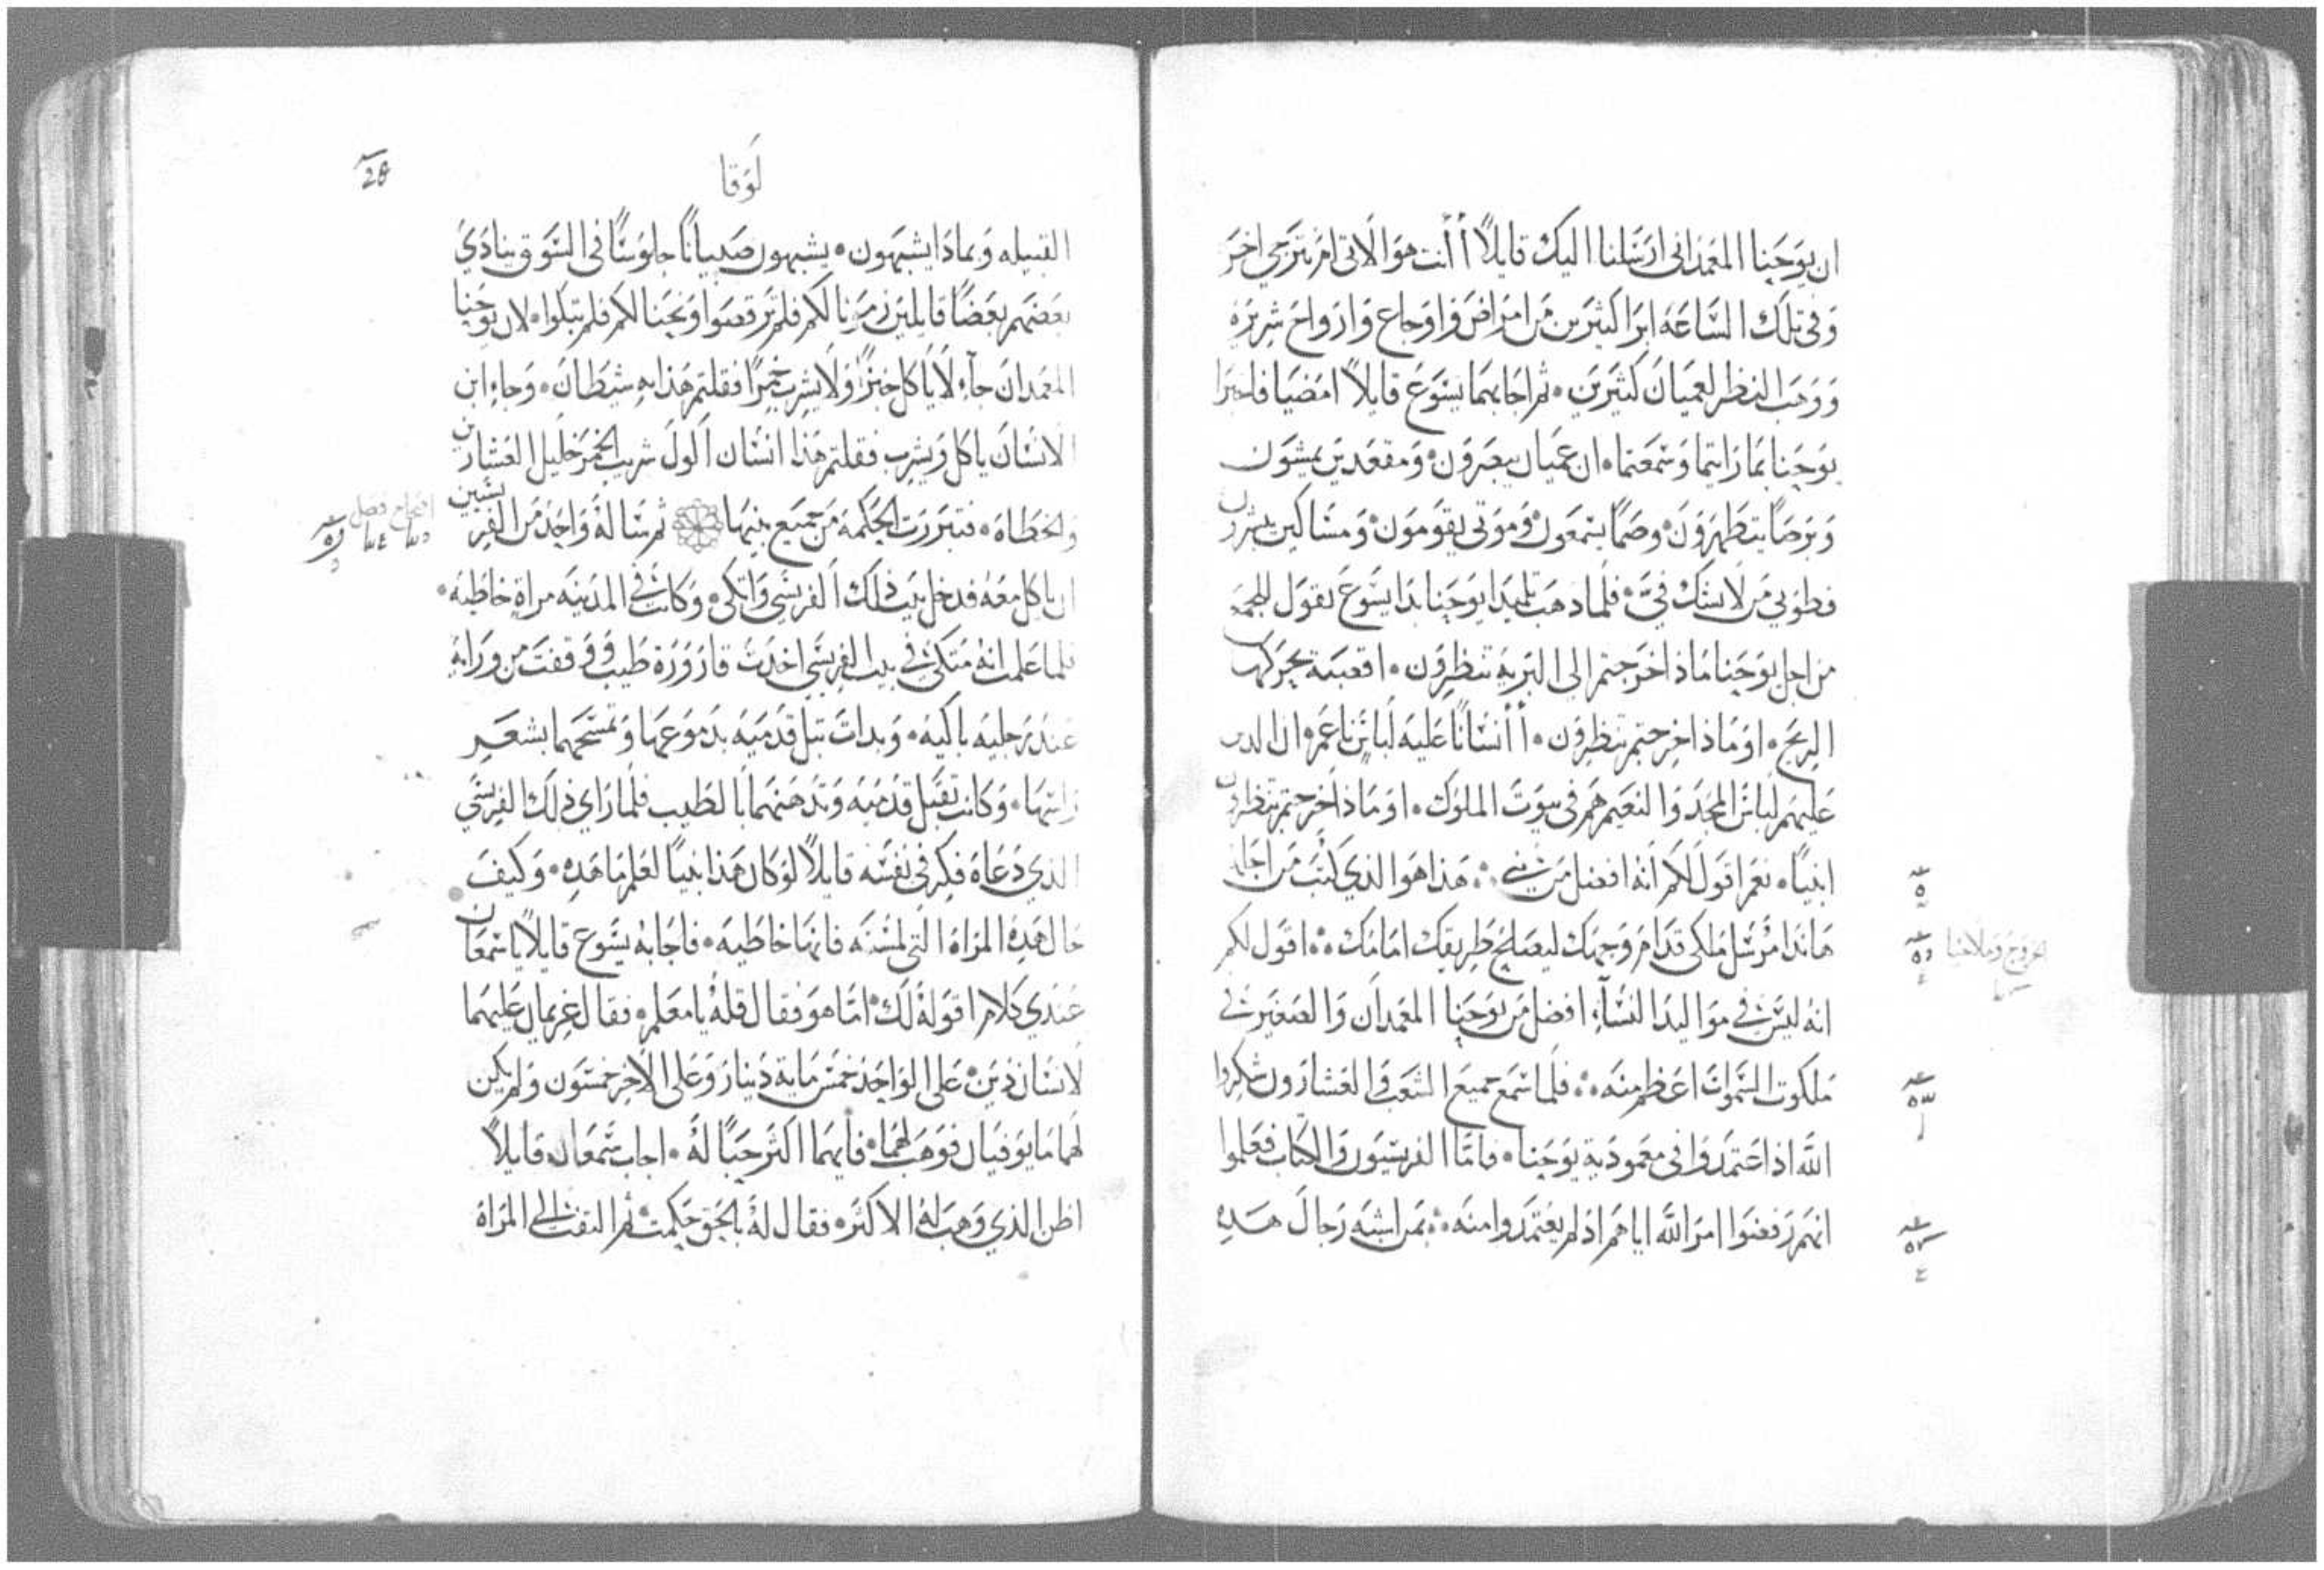 ان يوحنا المعمداني ارسلنا اليك قايلاً أأنت هو الاتي ام نترجي اخر
وفي تلك الساعه ابرا كثيرين من امراض واوجاع وارواح شريره
ووهب النظر لعميان كثيرين • ثم اجابهما يسوع قايلاً امضيا فاخبرا
يوحنا بما رايتما وسمعتما • ان عميان يبصرون • ومقعدين يمشون
وبرصاً يتطهرون • وصماً يسمعون • وموتى يقومون • ومساكين يبشرون
فطوبي من لا يشك فيّ • فلما ذهب تلميذا يوحنا بدا يسوع يقول للجمع
من اجل يوحنا ماذا خرجتم الى البريه تنظرون • اقصبة تحركها
الريح • او ماذا خرجتم تنظرون • أأنساناً عليه لباس ناعم • ان الدين
عليهم لباس المجد والنعيم هم في بيوت الملوك • او ماذا خرجتم تنظرون
انبياً • نعم اقول لكم انه افضل من نبي • هذا هو الذي كتب من اجله
هاندا مرسل ملاكي قدام وجهك ليصلح طريقك امامك • اقول لكم
انه ليس في مواليد النسآء افضل من يوحنا المعمدان والصغير في
ملكوت السموات اعظم منه • فلما سمع جميع الشعب والعشارون شكروا
الله اذ اعتمدوا في معمودية يوحنا • فاما الفريسيون والكتاب فعلموا
انهم رفضوا امر الله اياهم اذ لم يعتمدوا منه • بمن اشبه رجال هده
لوقا
28
القبيله وبماذا يشبهون • يشبهون صبياناً جلوساً في السوق ينادي
بعضهم بعضاً قايلين زمرنا لكم فلم ترقصوا ونحنا لكم فلم تبكوا • لان يوحنا
المعمدان جآء لا ياكل خبزاً ولا يشرب خمراً فقلتم هذا به شيطان • وجاء ابن
الانسان ياكل ويشرب فقلتم هذا انسان اكول شريب الخمر خليل العشارين
والخطاه • فتبررت الحكمه من جميع بنيها ثم ساله واحد من الفريسين
ان ياكل معه فدخل بيت ذلك الفريسي واتكى • وكانت في المدينه مراة خاطيه •
فلما علمت انه متكئ في بيت الفريسي اخدت قارورة طيب ووقفت من ورايه
عند رجليه باكيه • وبدات تبل قدميه بدموعها وتمسحهما بشعر
راسها • وكانت تقبل قدميه وتدهنهما بالطيب فلما راي ذلك الفريسي
الذي دعاه فكر في نفسه قايلاً لو كان هذا نبياً لعلم ما هده • وكيف
حال هذه المراه التي لمسته فانها خاطيه • فاجابه يسوع قايلاً ياسمعان
عندي كلام اقوله لك • اما هو فقال قله يا معلم • فقال غريمان عليهما
لانسان دين • على الواحد خمس ماية دينار وعلى الاخر خمسون ولم يكن
لهما ما يوفيان فوهب لهما • فايهما اكثر حباً له • اجاب سمعان قايلاً
اظن الذي وهب له الاكثر • فقال له بالحق حكمت • ثم التفت الى المراه